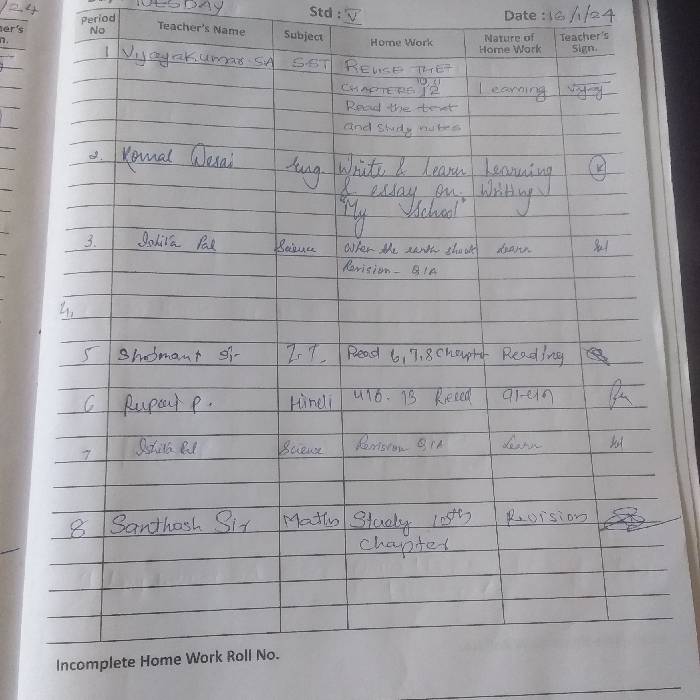 /24
TUESDAY Std : V Date : 16/1/24
Period No Teacher's Name Subject Home Work Nature of Home Work Teacher's Sign.
1 Vijayakumar.SA SST REVISE THE
CHAPTERS 12 Learning
Read the text
and study notes
2. Komal Desai Eng. Write & learn Learning
& essay on. Writing
"My School"
3. Ishita Pal Science When the earth shook Learn
Revision - Q/A
4.
5 Shobmant Sir I.T. Read 6,7,8 Chapter Reading
6 Rupali P. Hindi 13 Read
7 Ishita Pal Science Revision Q/A Learn
8 Santhosh Sir Maths Study 10th Revision
chapter
Incomplete Home Work Roll No.